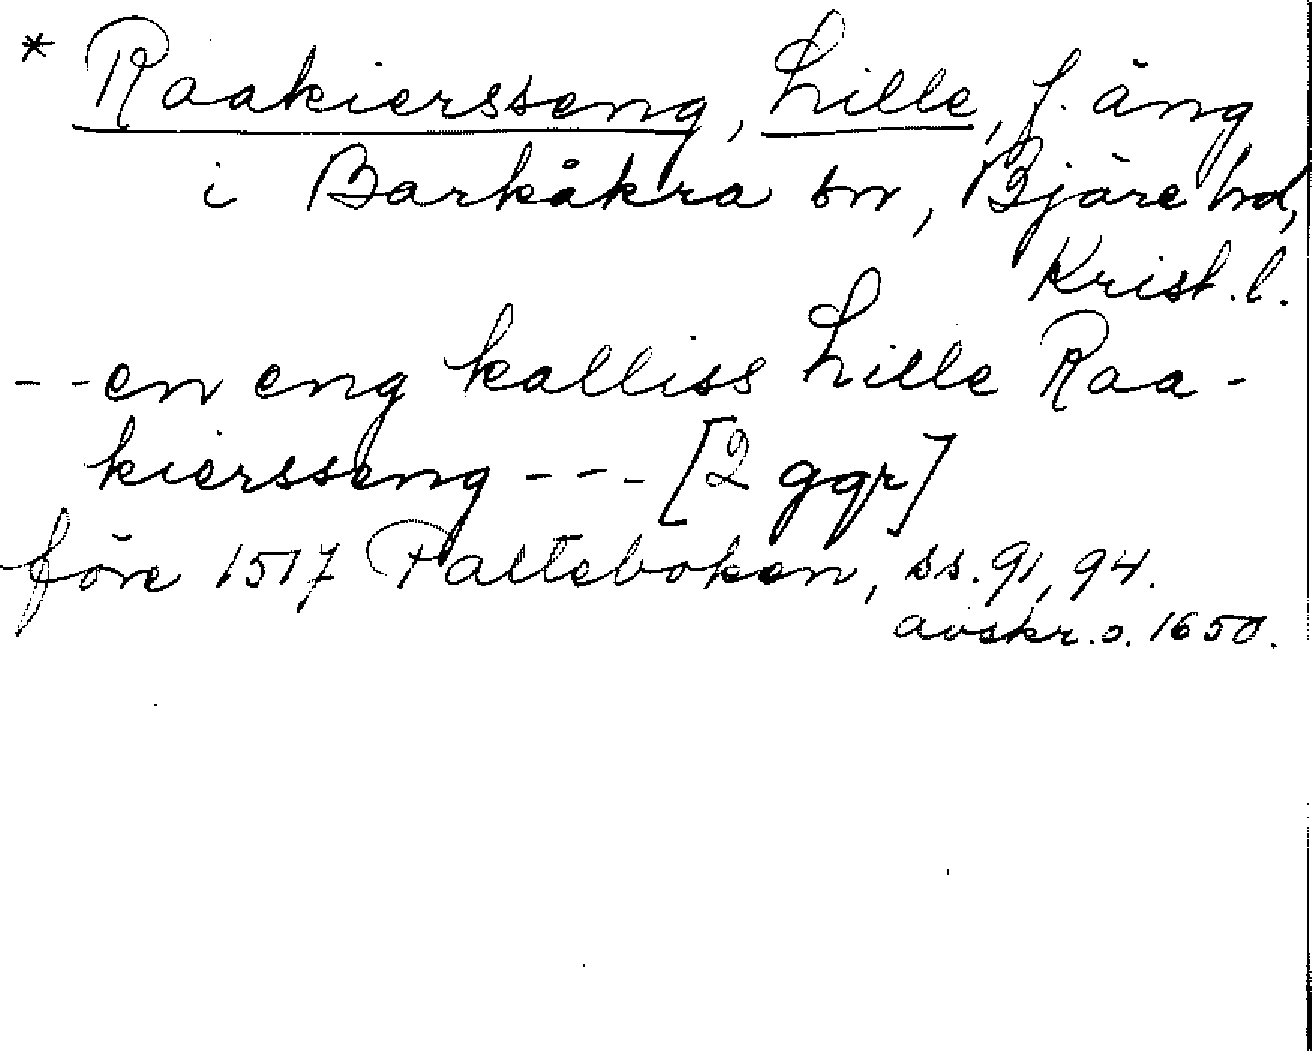 * Raakiersseng, Lille, f. äng
i Barkåkra sn, Bjäre hd,
Krist. l.
-- en eng kalliss Lille Raa-
kiersseng --- [2 ggr]
före 1517 Palteboken, ss. 91, 94.
avskr. o. 1650.